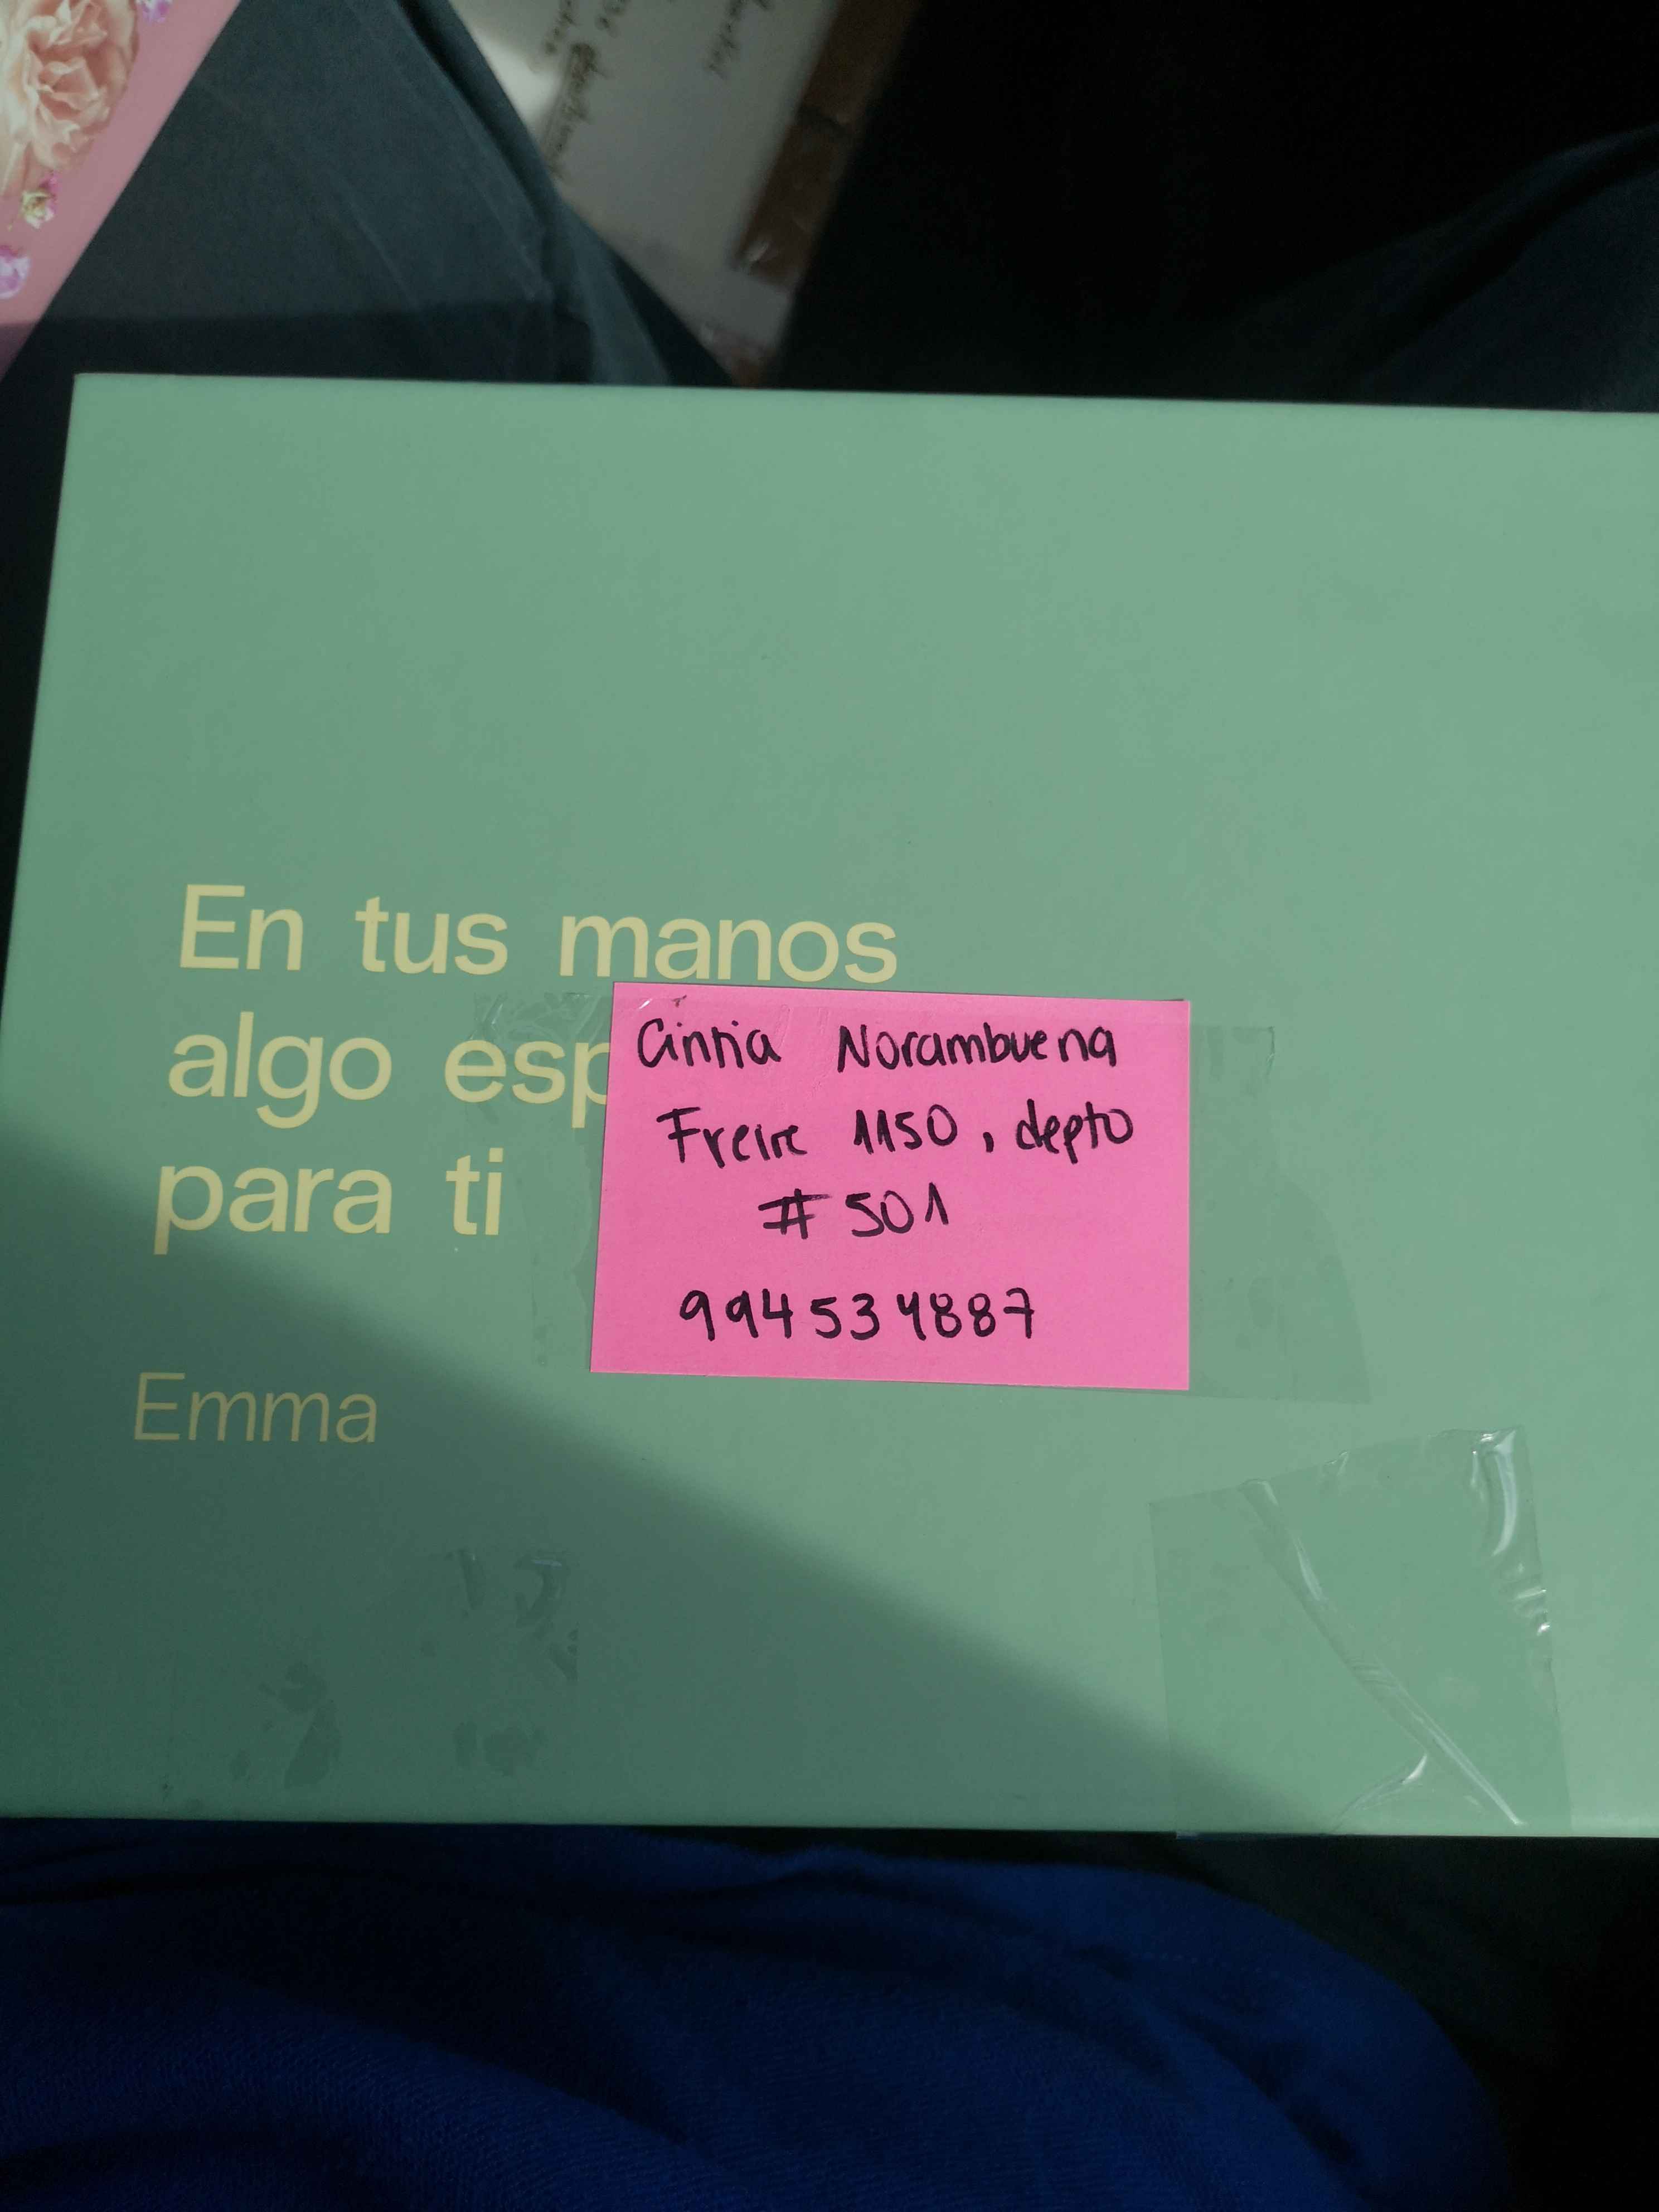 En tus manos
algo esp
para ti
Emma
Cintia Norambuena
Freire 1150, depto
#501
994534887